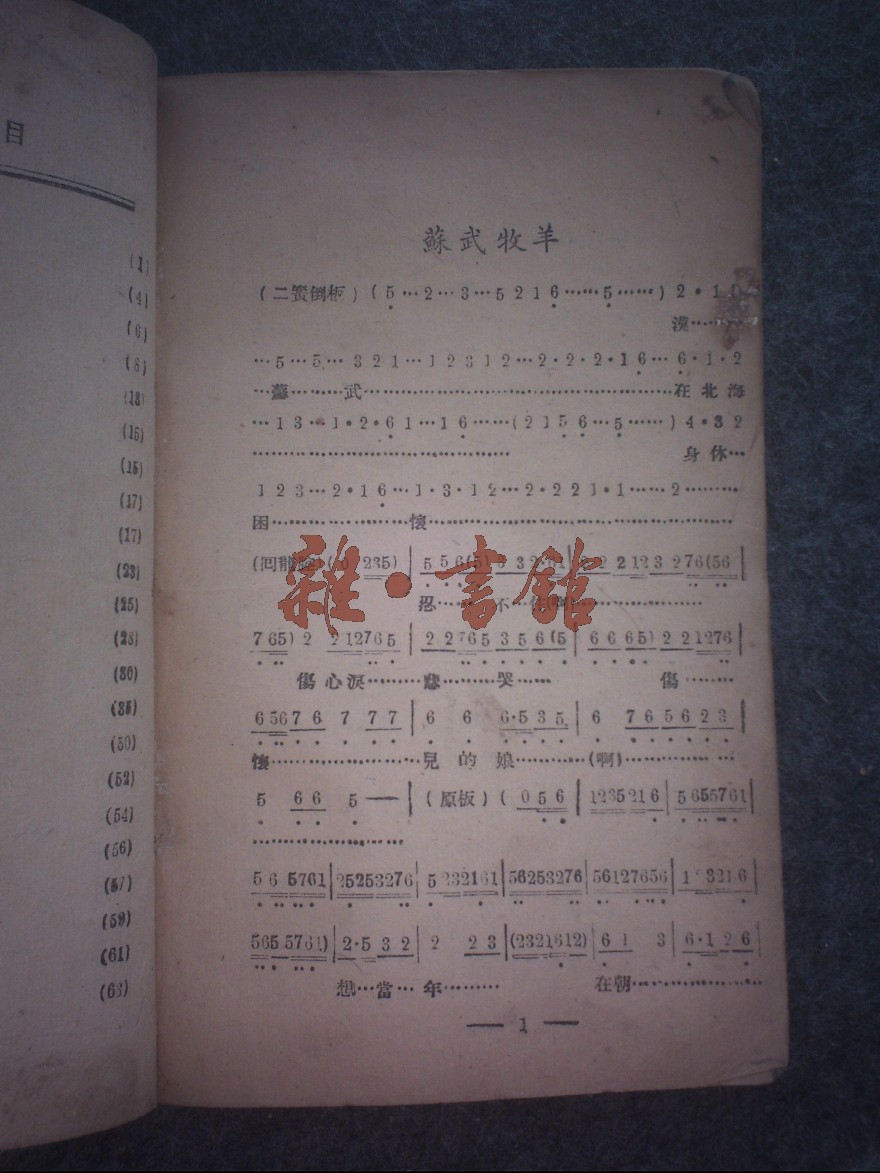 目
(1)
(4)
(6)
(8)
(13)
(15)
(15)
(17)
(17)
(23)
(25)
(28)
(30)
(35)
(50)
(52)
(54)
(56)
(57)
(59)
(61)
(63)
蘇武牧羊
(二簧倒板) (5…2…3…5 2 1 6……5……) 2·1
漢………
…5…5…3 2 1…1 2 3 1 2…2·2·2·1 6…6·1·2
…蘇………武………………………………在北海
…1 3…1·2·6 1…1 6……(2 1 5 6…5……) 4·3 2
………………………… 身体…
1 2 3…2·1 6…1·3·1 2…2·2 2 1·1……2………
困………………懷………………………………
(回龍腔)
忍………不………
7 6 5) 2 2 1 2 7 6 5 | 2 2 7 6 5 3 5 6 (5 | 6 6 6 5) 2 2 1 2 7 6 |
傷心淚………悲……哭…… 傷………
6 5 6 7 6 7 7 7 | 6 6 6·5 3 5 | 6 7 6 5 6 2 3 |
懷………………兒的娘…………(啊)……………
5 6 6 5 — | (原板) ( 0 5 6 | 1 2 3 5 2 1 6 | 5 6 5 5 7 6 1 |
………………
5 6 5 7 6 1 | 2 5 2 5 3 2 7 6 | 5 2 3 2 1 6 1 | 5 6 2 5 3 2 7 6 | 5 6 1 2 7 6 5 6 | 1 2 3 2 1 6 |
5 6 5 5 7 6 1) | 2·5 3 2 | 2 2 3 | (2 3 2 1 6 1 2) | 6 1 3 | 6·1 2 6 |
想…當…年……… 在朝………………
— 1 —
雜·書館